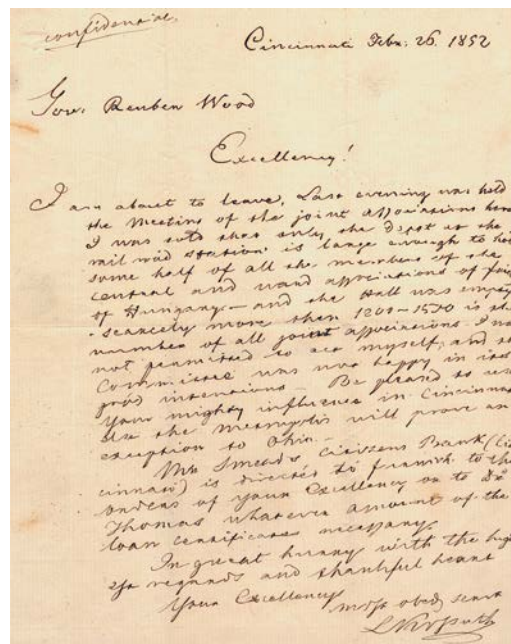 confidencial.
Cincinnati Febr. 26. 1852
Gov. Reuben Wood
Excellency!
I am about to leave, Last evening was held
the Meeting of the joint associations here
I was told that only the depot at the
rail road station is large enough to hold
some half of all the members of the
central and ward associations of
of Hungary – and the Hall was empty
scarcely more then 1200–1500 is the
number of all joint associations. I was
not permitted to act myself, and the
Committee was not happy in its
good intentions – Be pleased to use
Your mighty influence in Cincinnati
the Metropolis will prove an
exception to Ohio. –
Mr Smeads Citizens Bank (Cin
cinnati) is directed to furnish to the
orders of Your Excellency or to Dr
Thomas whatever amount of the
loan certificates necessary
In great hurry with the high
est regards and thankful heart
Your Excellencys
most obed servt
LKossuth